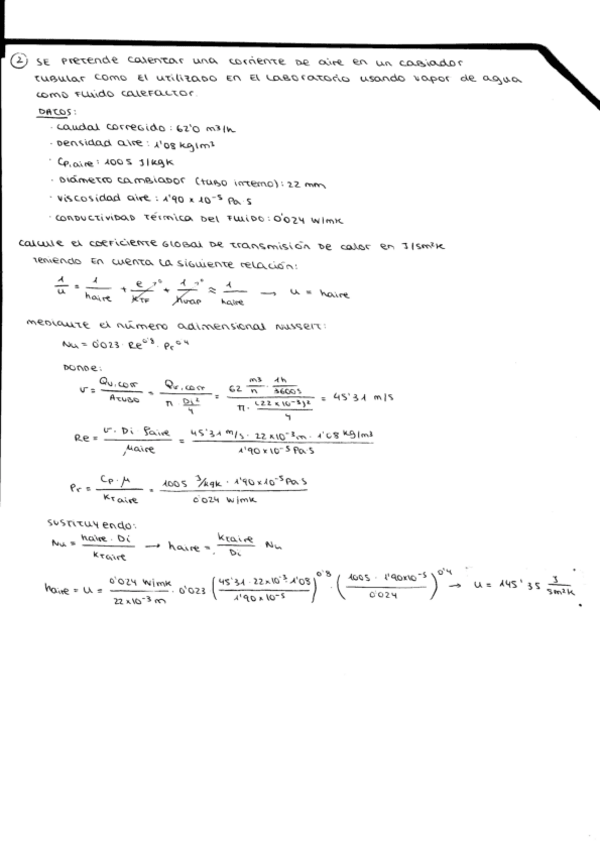 ② SE PRETENDE CALENTAR UNA CORRIENTE DE AIRE EN UN CABIADOR
TUBULAR COMO EL UTILIZADO EN EL LABORATORIO USANDO VAPOR DE AGUA
COMO FLUIDO CALEFACTOR.
DATOS:
· CAUDAL CORREGIDO: 62'0 m³/h
· DENSIDAD AIRE: 1'08 kg/m³
· Cp,aire: 1005 J/kgK
· DIÁMETRO CAMBIADOR (TUBO INTERNO): 22 mm
· VISCOSIDAD AIRE: 1'90 x 10⁻⁵ Pa·s
· CONDUCTIVIDAD TÉRMICA DEL FLUIDO: 0'024 W/mK
CALCULE EL COEFICIENTE GLOBAL DE TRANSMISIÓN DE CALOR EN J/sm²K
TENIENDO EN CUENTA LA SIGUIENTE RELACIÓN:
1/u = 1/haire + e/KTF →0 + 1/hvap →0 ≈ 1/haire → u = haire
MEDIANTE EL NÚMERO ADIMENSIONAL NUSSELT:
Nu = 0'023 · Re^0'8 · Pr^0'4
DONDE:
v = Qv,corr/Atubo = Qv,corr/(π · Di²/4) = (62 m³/h · 1h/3600s)/(π · (22x10⁻³)²/4) = 45'31 m/s
Re = (v · Di · ρaire)/μaire = (45'31 m/s · 22x10⁻³m · 1'08 kg/m³)/(1'90x10⁻⁵ Pa·s)
Pr = (Cp · μ)/KTaire = (1005 J/kgK · 1'90x10⁻⁵ Pa·s)/(0'024 W/mK)
SUSTITUYENDO:
Nu = (haire · Di)/KTaire → haire = KTaire/Di · Nu
haire = u = (0'024 W/mK)/(22x10⁻³ m) · 0'023 ((45'31 · 22x10⁻³ 1'08)/(1'90x10⁻⁵))^0'8 · ((1005 · 1'90x10⁻⁵)/0'024)^0'4 → u = 145'35 J/sm²K